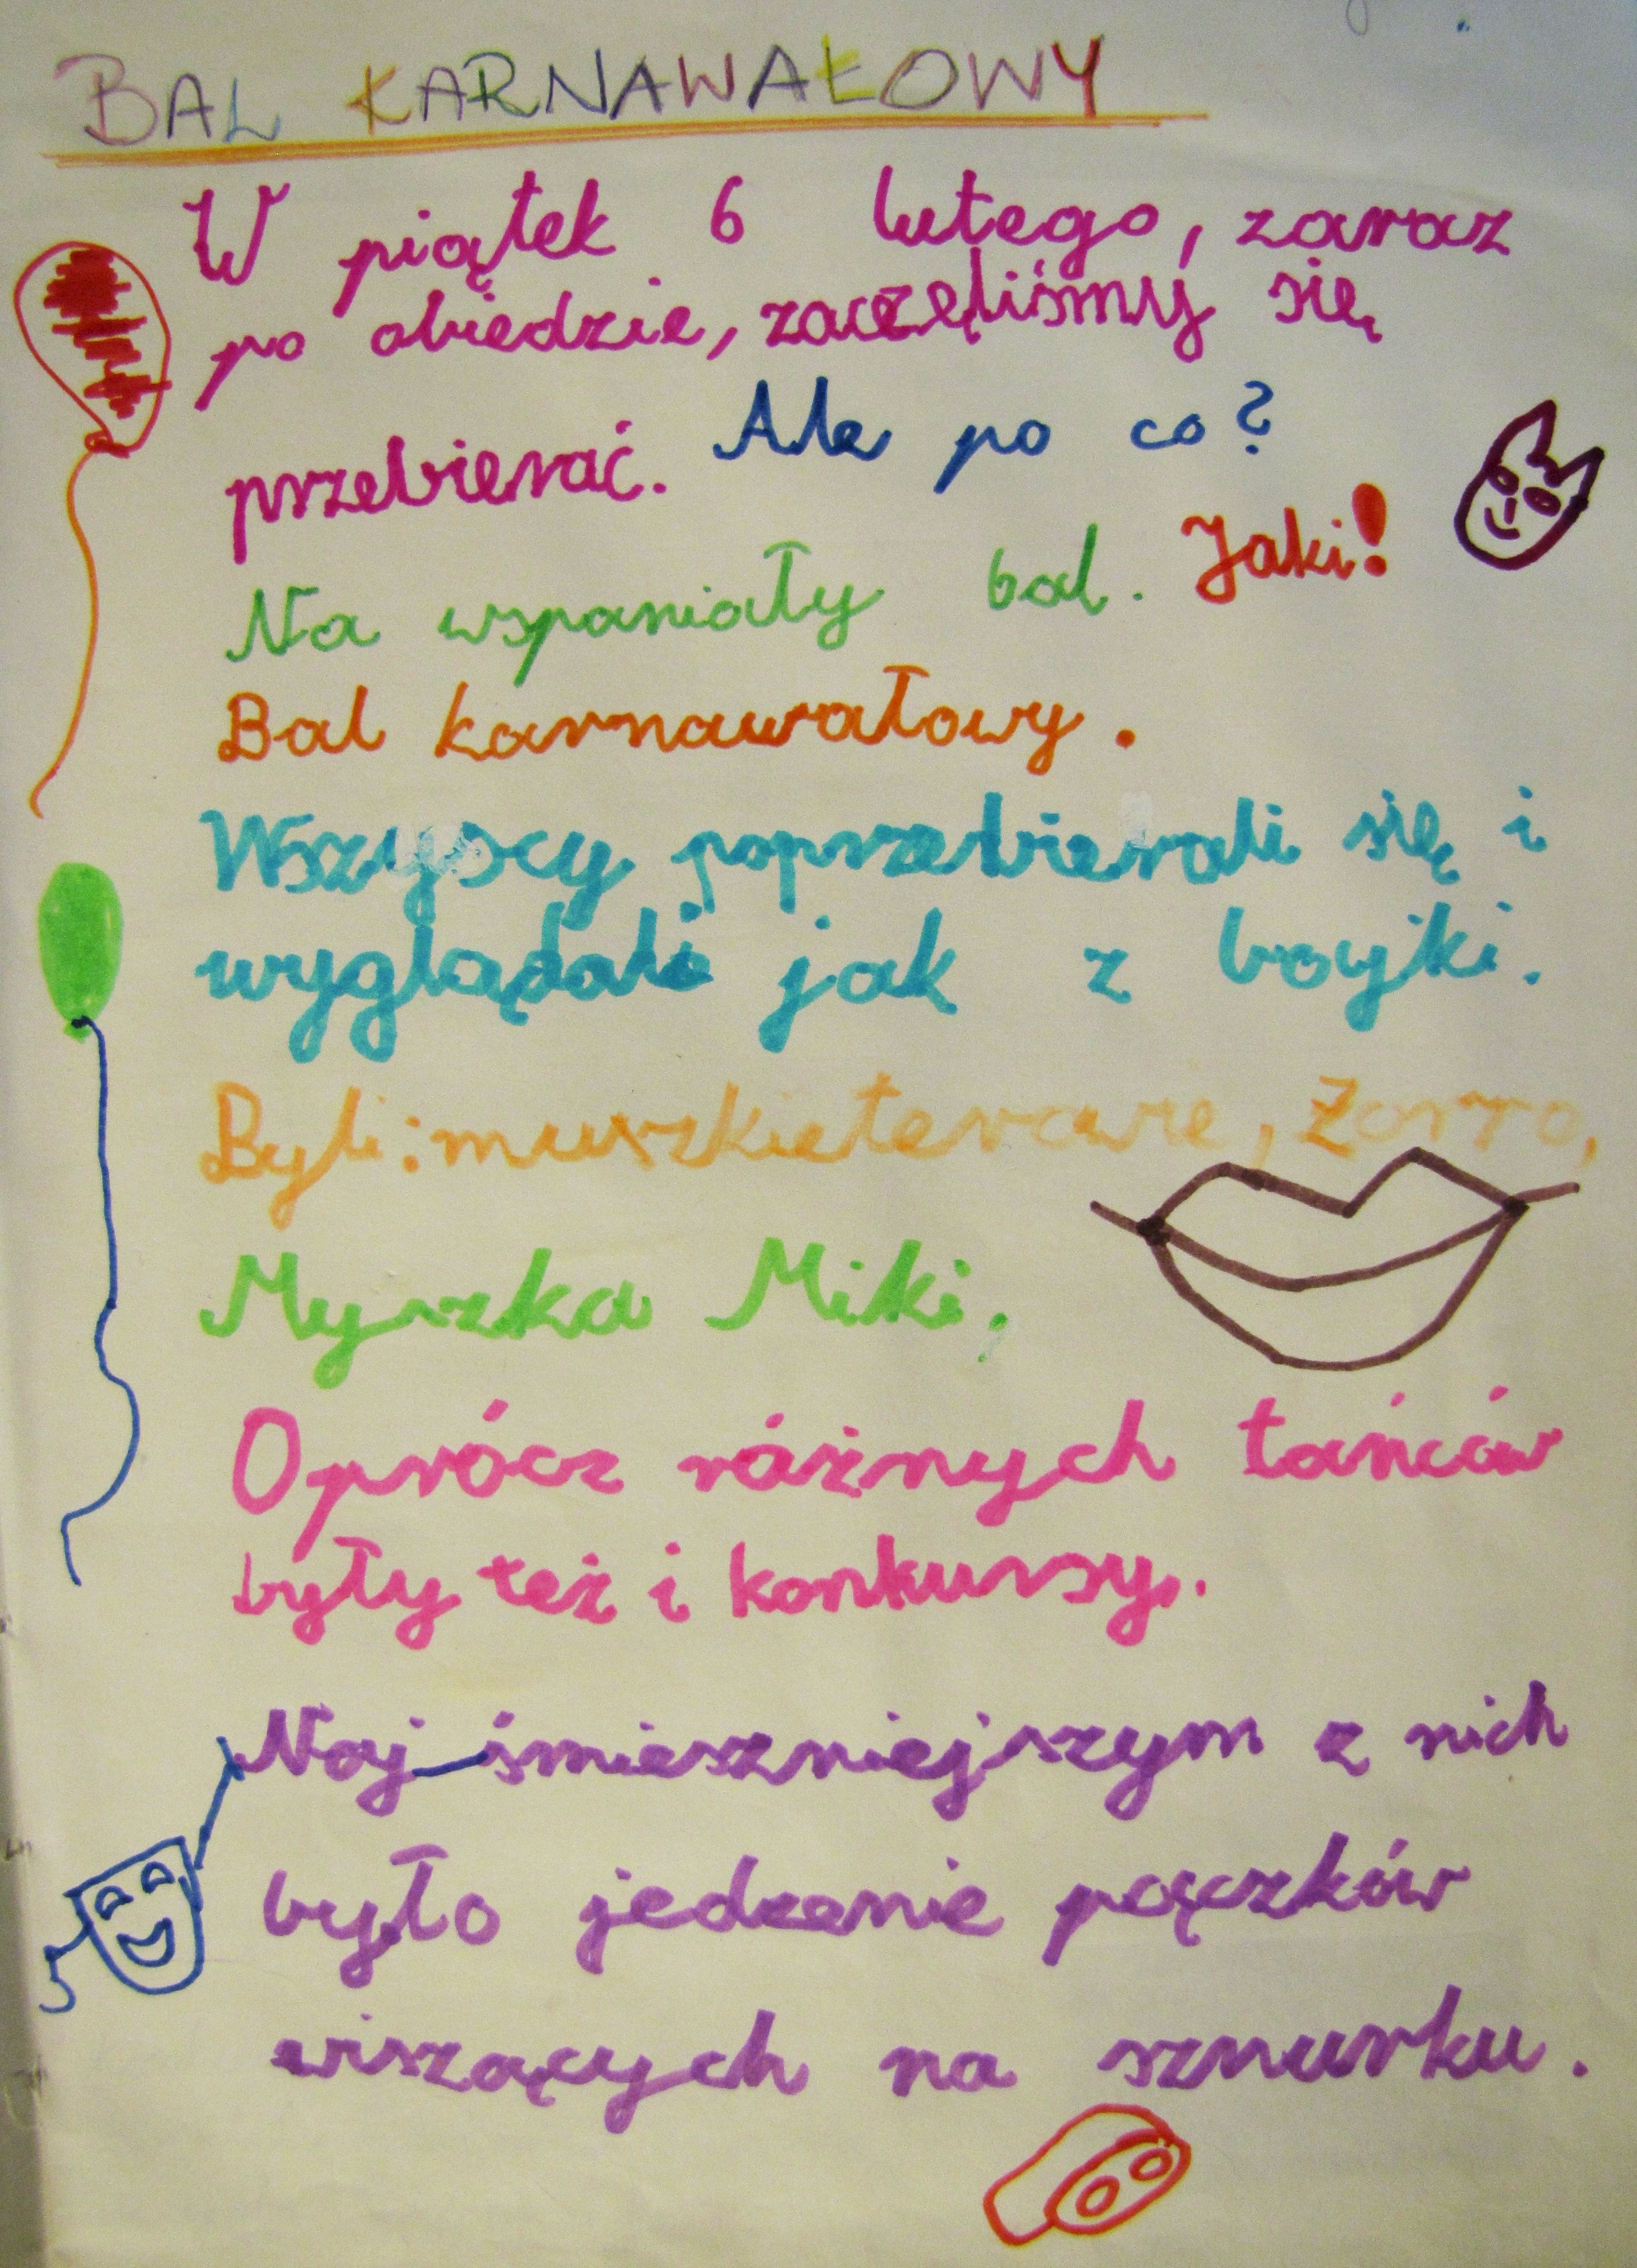 BAL KARNAWAŁOWY
W piątek 6 lutego, zaraz
po obiedzie, zaczęliśmy się
przebierać. Ale po co?
Na wspaniały bal. Jaki!
Bal karnawałowy.
Wszyscy poprzebierali się i
wyglądali jak z bajki.
Byli: muszkieterowie, Zorro,
Myszka Miki,
Oprócz różnych tańców
były też i konkursy.
Najśmieszniejszym z nich
było jedzenie pączków
wiszących na sznurku.